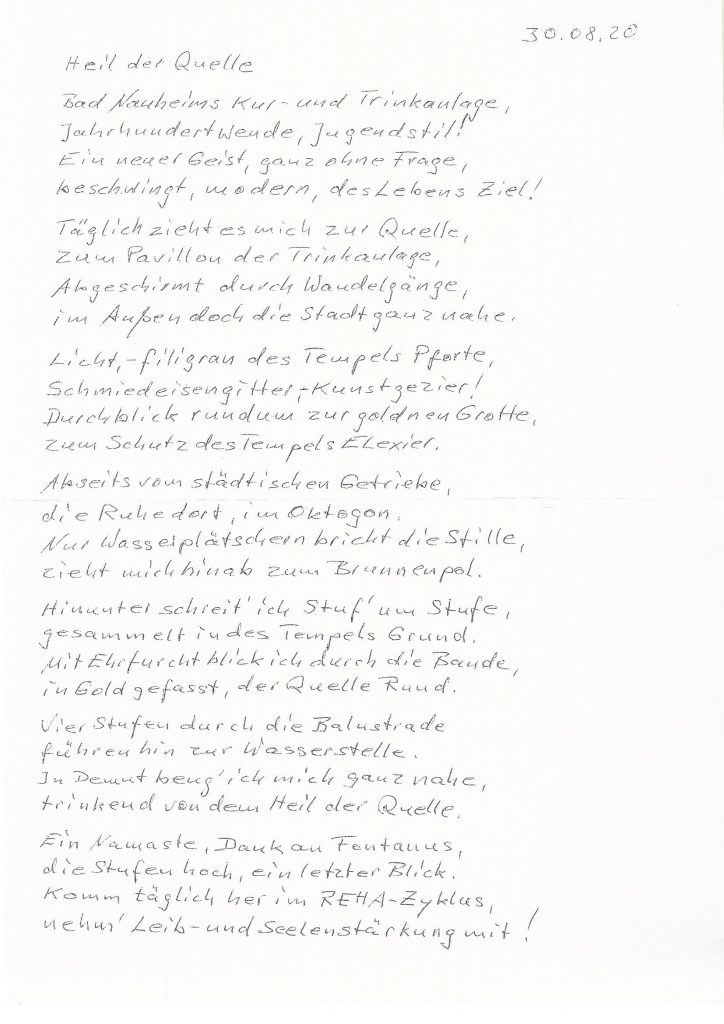 30.08.20
Heil der Quelle
Bad Nauheims Kur- und Trinkanlage,
Jahrhundertwende, Jugendstil!
Ein neuer Geist, ganz ohne Frage,
beschwingt, modern, des Lebens Ziel!
Täglich zieht es mich zur Quelle,
zum Pavillon der Trinkanlage,
Abgeschirmt durch Wandelgänge,
im Außen doch die Stadt ganz nahe.
Licht,-filigran des Tempels Pforte,
Schmiedeisengitter,-Kunstgezier!
Durchblick rundum zur goldnen Grotte,
zum Schutz des Tempels Elexier.
Abseits vom städtischen Getriebe,
die Ruhe dort, im Oktogon.
Nur Wasserplätschern bricht die Stille,
zieht mich hinab zum Brunnenpol.
Hinunter schreit' ich Stuf' um Stufe,
gesammelt in des Tempels Grund.
Mit Ehrfurcht blick ich durch die Bande,
in Gold gefasst, der Quelle Rund.
Vier Stufen durch die Balustrade
führen hin zur Wasserstelle.
In Demut beug' ich mich ganz nahe,
trinkend von dem Heil der Quelle.
Ein Namaste, Dank an Fontanus,
die Stufen hoch, ein letzter Blick.
Komm täglich her im REHA-Zyklus,
nehm' Leib- und Seelenstärkung mit!